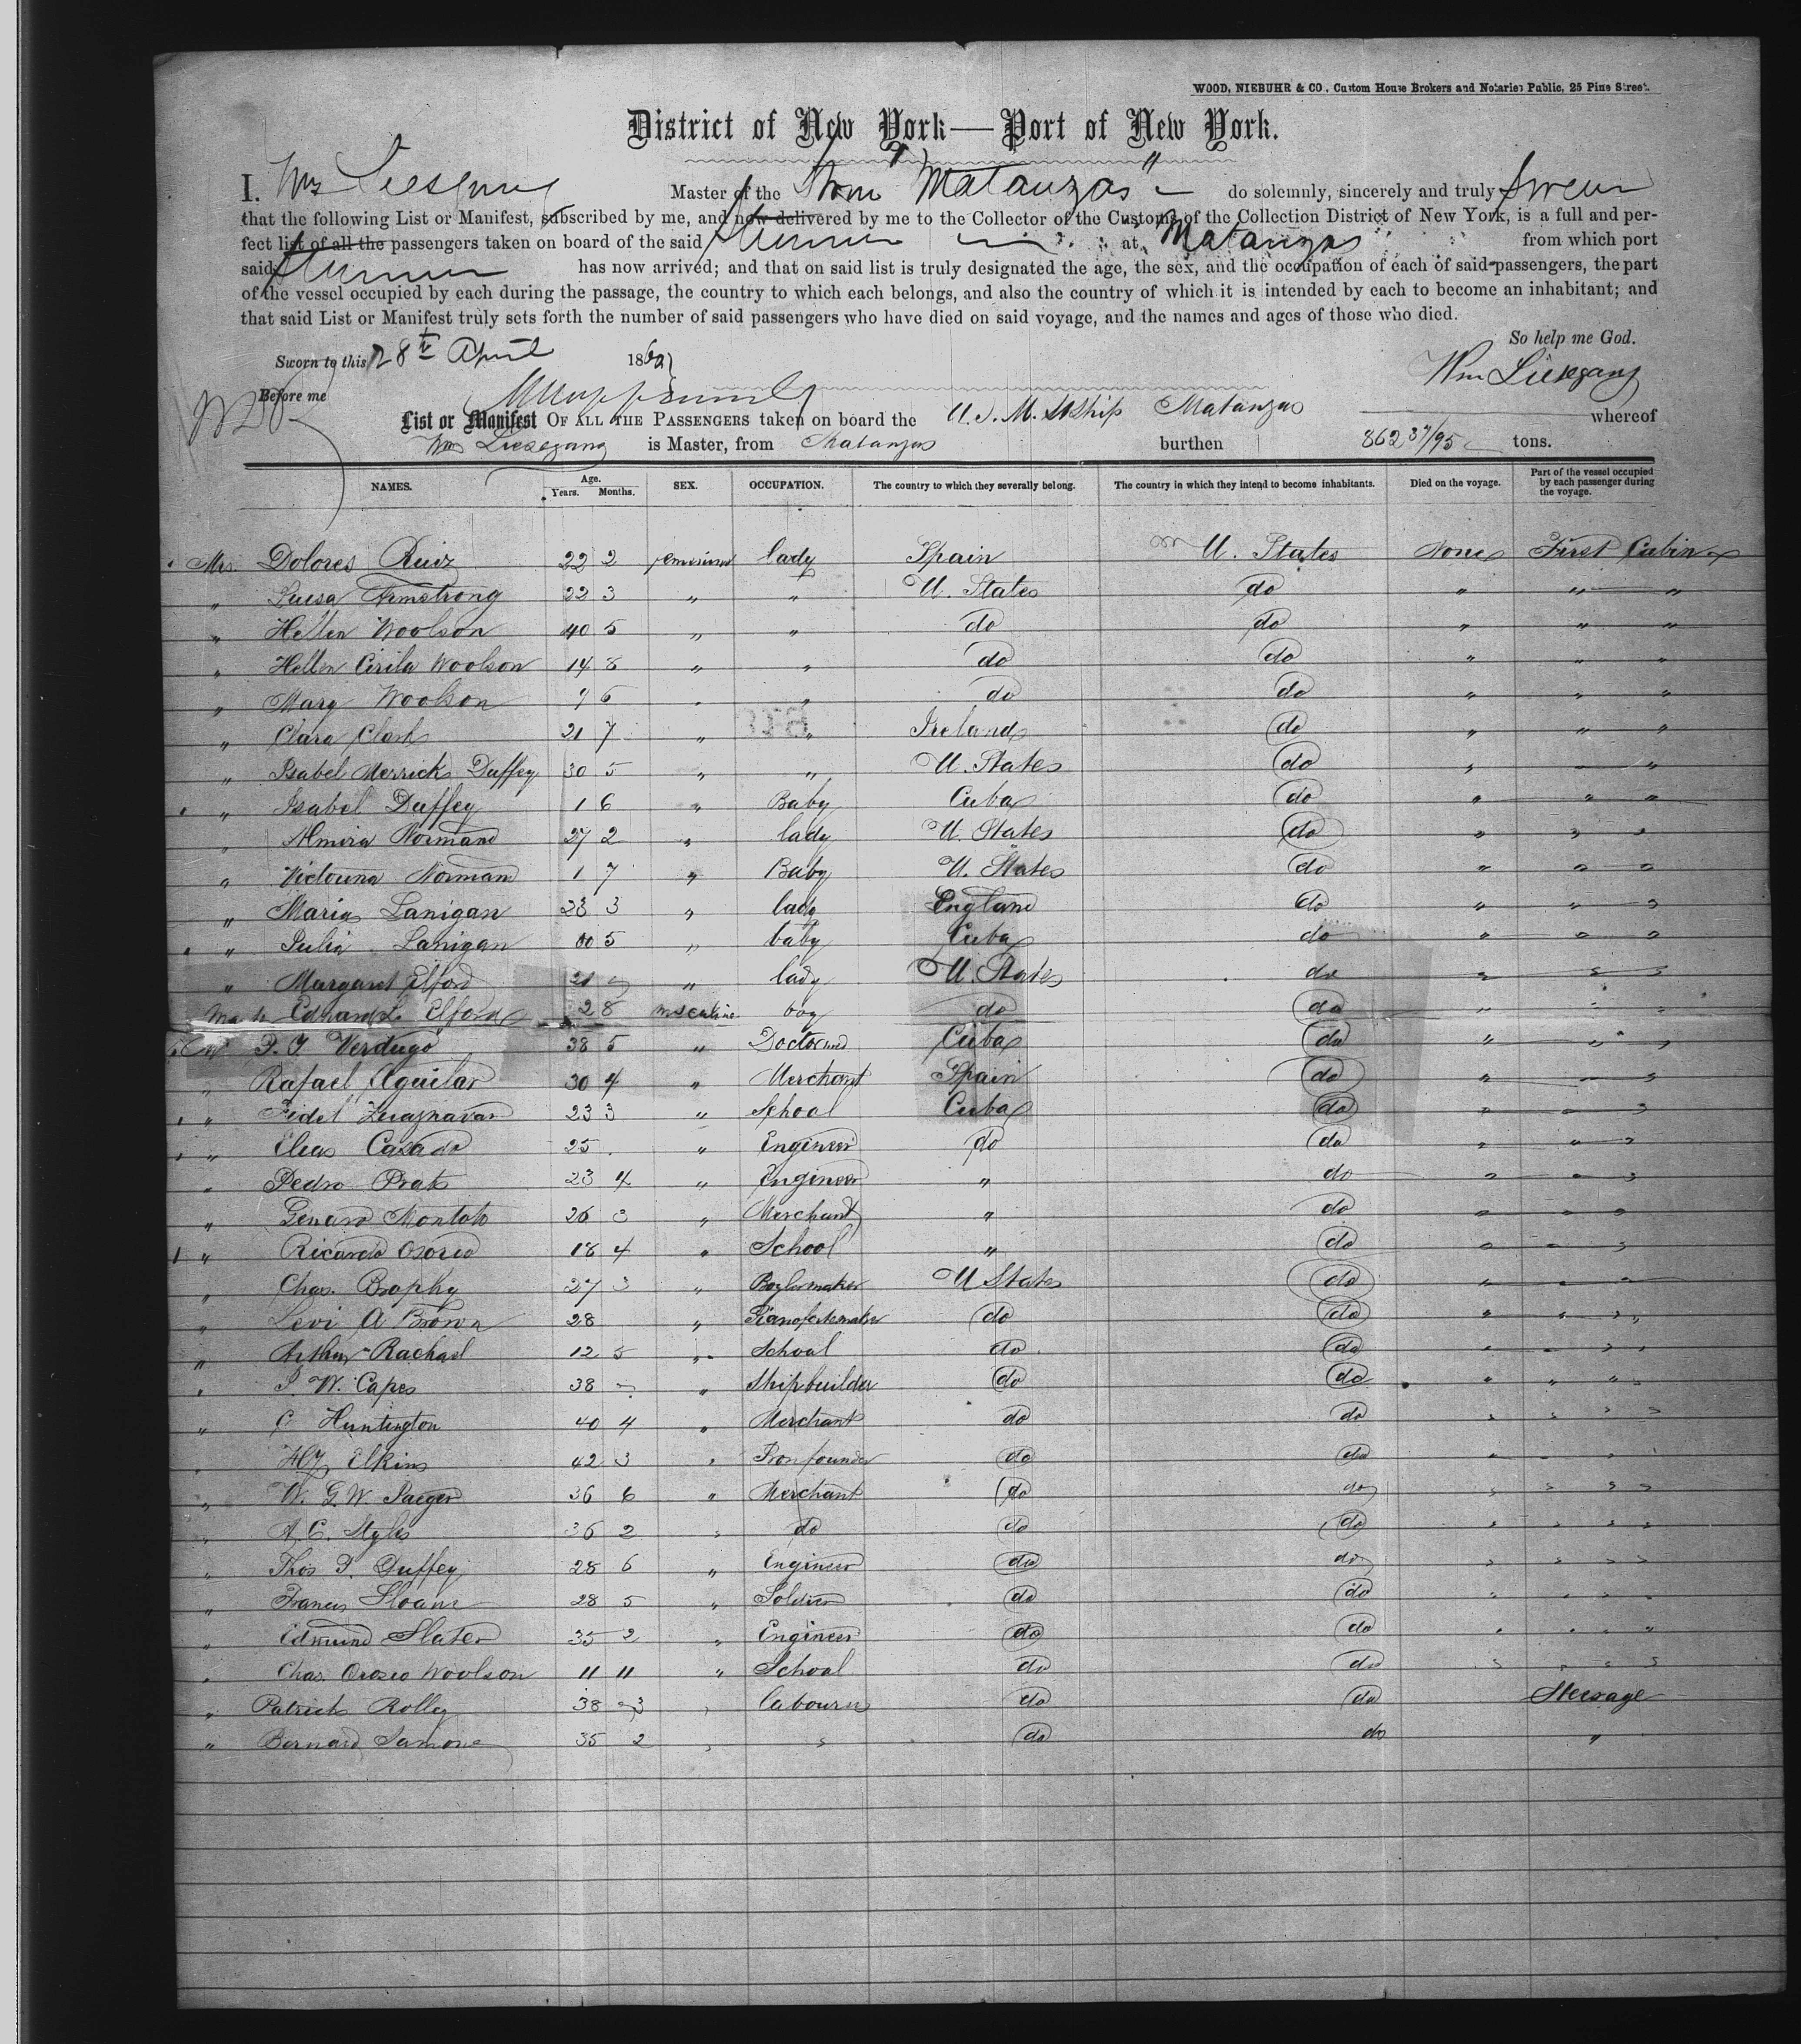 WOOD, NIEBUHR & CO. Custom House Brokers and Notaries Public, 25 Pine Street.
District of New York—Port of New York.
I. Wm Liesegang Master of the Stmr "Matanzas" do solemnly, sincerely and truly swear
that the following List or Manifest, subscribed by me, and now delivered by me to the Collector of the Customs of the Collection District of New York, is a full and per-
fect list of all the passengers taken on board of the said Steamer at Matanzas from which port
said Steamer has now arrived; and that on said list is truly designated the age, the sex, and the occupation of each of said passengers, the part
of the vessel occupied by each during the passage, the country to which each belongs, and also the country of which it is intended by each to become an inhabitant; and
that said List or Manifest truly sets forth the number of said passengers who have died on said voyage, and the names and ages of those who died.
So help me God.
Sworn to this 28th April 186
Wm Liesegang
Before me
List or Manifest OF ALL THE PASSENGERS taken on board the U.S.M. StShip Matanzas whereof
Wm Liesegang is Master, from Matanzas burthen 862 37/95 tons.
NAMES. Age. Years. Months. SEX. OCCUPATION. The country to which they severally belong. The country in which they intend to become inhabitants. Died on the voyage. Part of the vessel occupied by each passenger during the voyage.
Mrs Dolores Ruiz 22 2 femenine lady Spain U. States None First Cabin
" Luisa Armstrong 22 3 " " U. States do " " "
" Hellen Woolson 40 5 " " do do " " "
" Hellen Cirila Woolson 14 8 " " do do " " "
" Mary Woolson 9 6 " " do do " " "
" Clara Clark 21 7 " " Ireland do " " "
" Isabel Merrick Duffey 30 5 " " U. States do " " "
" Isabel Duffey 1 6 " Baby Cuba do " " "
" Almira Normand 27 2 " lady U. States do " " "
" Normand 1 7 " Baby U. States do " " "
" Maria Lanigan 23 3 " lady England do " " "
" Julia Lanigan 00 5 " baby Cuba do " " "
" Margaret Elford 21 " lady U. States do " " "
Edward L. Elford 2 8 masculine boy do do " " "
P. J. Verdugo 38 5 " Doctor Cuba do " " "
" Rafael Aguilar 30 4 " Merchant Spain do " " "
" Fidel Zuaznavar 23 3 " School Cuba do " " "
" Elias Casado 25 " Engineer do do " " "
" Pedro Prats 23 4 " Engineer " do " " "
" Genaro Montoto 26 3 " Merchant " do " " "
" Ricardo Osorio 18 4 " School " do " " "
" Chas. Brophy 27 3 " Boylermaker U States do " " "
" Levi A Brown 28 " Pianofortemaker do do " " "
" Arthur Rachael 12 5 " School do do " " "
" W. Capes 38 " Shipbuilder do do " " "
" C Huntington 40 4 " Merchant do do " " "
" Elkins 42 3 " Iron founder do do " " "
" W. G. W. Jaeger 36 6 " Merchant do do " " "
" A. C. Styles 36 2 " do do do " " "
" Thos P. Duffey 28 6 " Engineer do do " " "
" Francis Sloane 28 5 " Soldier do do " " "
" Edmund Slater 35 2 " Engineer do do " " "
" Chas Orosco Woolson 11 11 " School do do " " "
" Patrick Rolley 38 3 " labourer do do Steerage
" Bernard 35 2 " " do do "